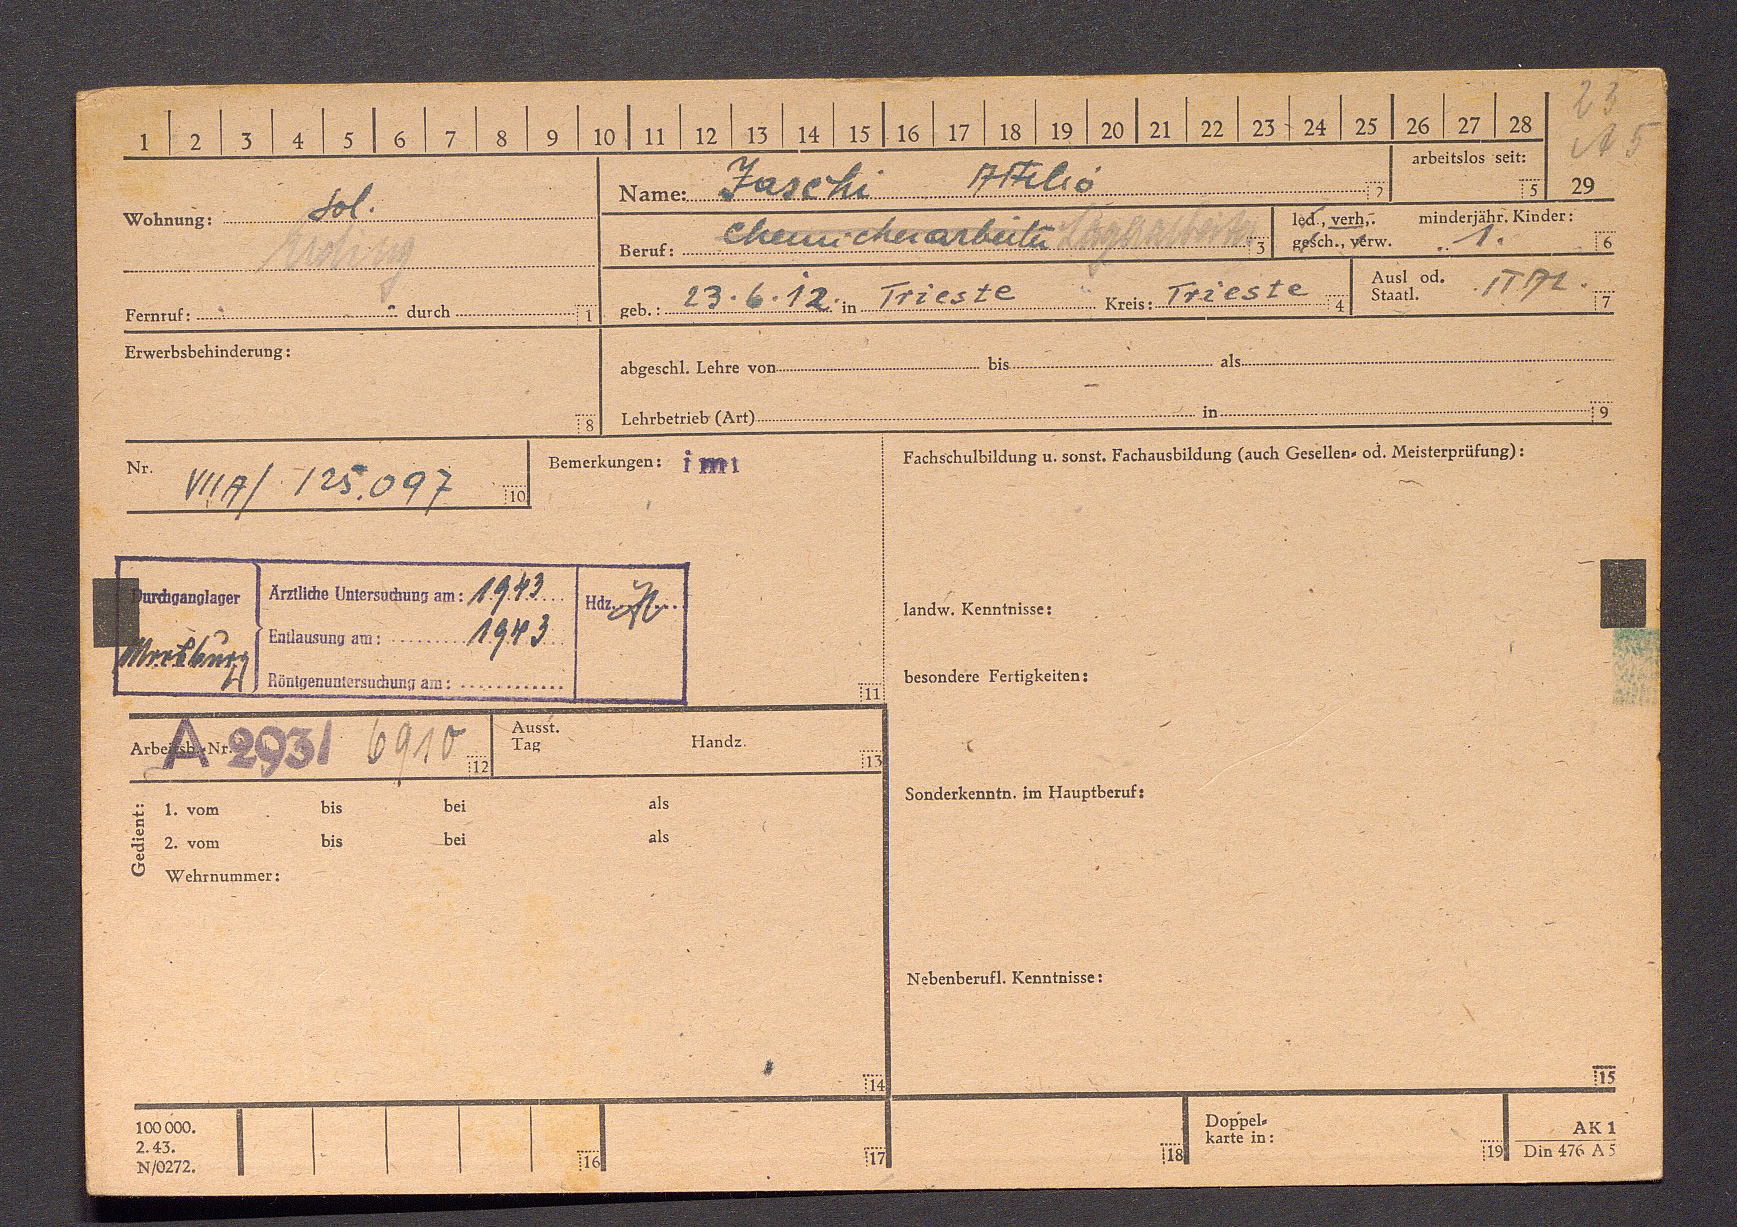 1 2 3 4 5 6 7 8 9 10 11 12 13 14 15 16 17 18 19 20 21 22 23 24 25 26 27 28
23
A 5
29
Wohnung: sol.
Erding
Fernruf: - durch 1
Name: Jaschi Attilio 2
arbeitslos seit: 5
Beruf: chemicherarbeiter Lagerarbeiter 3
led., verh., minderjähr. Kinder:
gesch., verw. 1. 6
geb.: 23.6.12. in Trieste Kreis: Trieste 4
Ausl od.
Staatl. ITAL. 7
Erwerbsbehinderung: 8
abgeschl. Lehre von bis als
Lehrbetrieb (Art) in 9
Nr. VIIA/ 125.097 10
Bemerkungen: imi
Fachschulbildung u. sonst. Fachausbildung (auch Gesellen- od. Meisterprüfung):
Durchganglager
Ärztliche Untersuchung am: 1943
Hdz.
Entlausung am: 1943
Röntgenuntersuchung am:
11
landw. Kenntnisse:
besondere Fertigkeiten:
Arbeitsb.-Nr. A 293/ 6910 12
Ausst.
Tag Handz. 13
Sonderkenntn. im Hauptberuf:
Gedient:
1. vom bis bei als
2. vom bis bei als
Wehrnummer:
Nebenberufl. Kenntnisse:
14
15
100 000.
2. 43.
N/0272.
16
17
18
Doppel-
karte in: 19
AK 1
Din 476 A 5